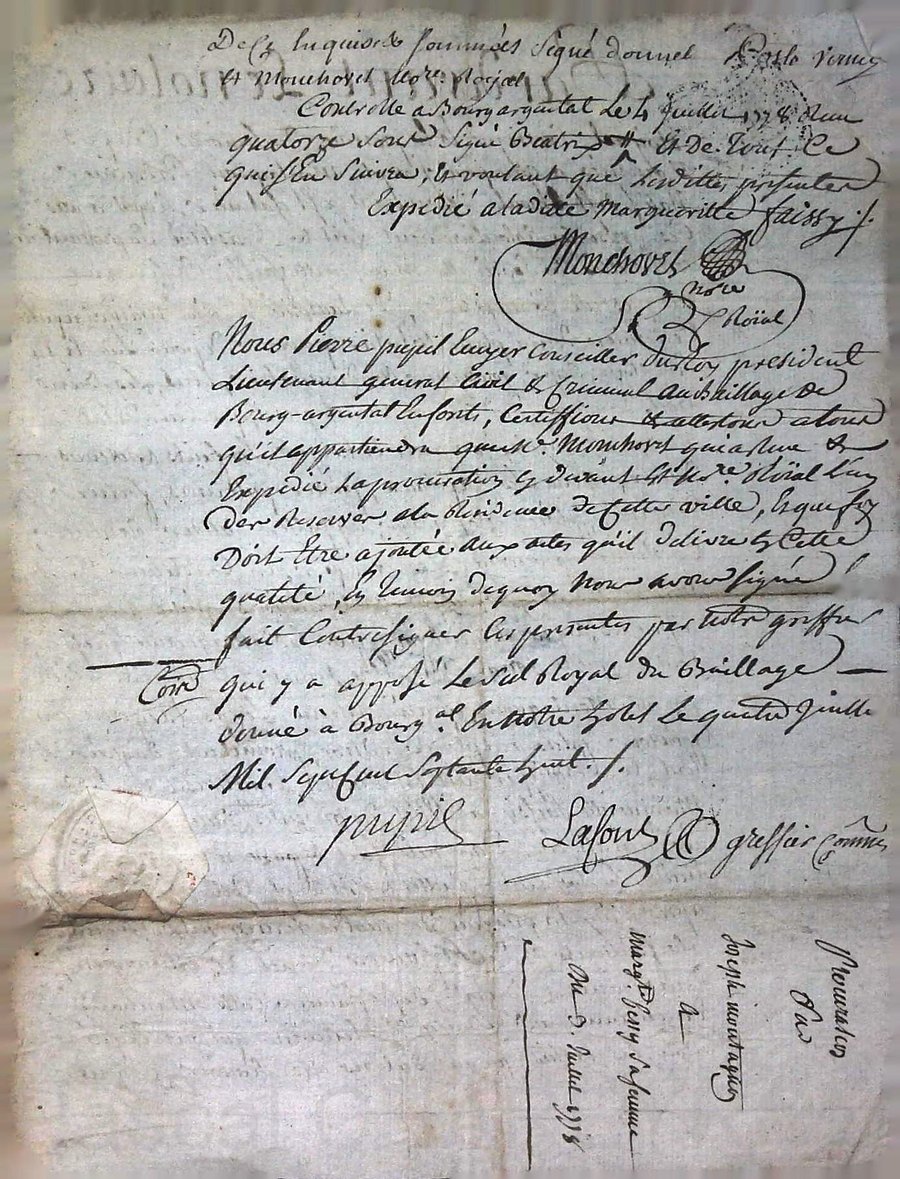 De ce Enquis & Sommées Signé donnet
Et Monchovet No.re Roÿal
Controllé a Bourgargental Le 4 Juillet 1778 Reçu
quatorze Sols Signé Béatrix Et de Tout Ce
qui s'En Suivra, Et voulant que Lesdittes presentes
Expedié a ladite Margueritte faissy ./.
Monchovet
No.re
Roïal
Nous Pierre pupil Ecuyer Conseiller du Roy president
Lieutenant general Civil & Criminel au Baillage de
Bourg-argental En forêts, Certiffions & attestons a tous
qu'il appartiendra que M.e Monchovet qui a Reçu &
Expedié La procuration cy devant Est No.re Roïal L'un
des Reservés a la Residence de Cette ville, Et que foy
Doit Etre ajoutée aux actes qu'il delivre En Cette
qualité, En Temoin de quoy Nous avons Signé
fait Contresigner Les presentes par notre greffier
qui y a apposé Le Scel Royal du Baillage
donné à Bourg al. En notre hotel Le quatre Juillet
Mil Sept Cent Septante huit ./.
pupil
Lafont greffier Commis
Procuration
Par
Joseph montagnon
A
Marg.te fessy Sa femme
Du 3 Juillet 1778